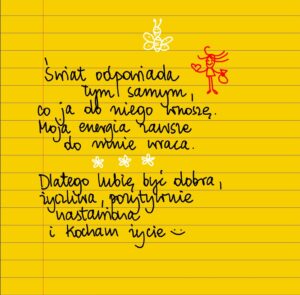 Świat odpowiada
tym samym,
co ja do niego wnoszę.
Moja energia zawsze
do mnie wraca.
Dlatego lubię być dobra,
życzliwa, pozytywnie
nastawiona
i kocham życie